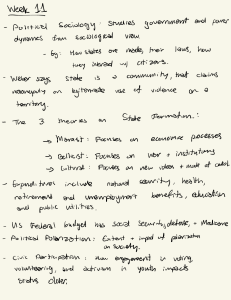 Week 11
- Political Sociology: Studies government and power
dynamics from sociological view.
- Eg: How states are made, their laws, how
they interact w/ citizens.
- Weber says state is a community that claims
monopoly on legitimate use of violence on a
territory.
- The 3 theories on State Formation:
→ Marxist: Focuses on economic processes
→ Bellicist: Focuses on war + institutions
→ Cultural: Focuses on new ideas +
- Expenditures include national security, health,
retirement and unemployment benefits, education
and public utilities.
- US Federal budget has social security, defense, + Medicare
- Political Polarization: Extent + impact of polarization
on society.
- Civic Participation: How engagement in voting,
volunteering, and activism in youth impacts
older.